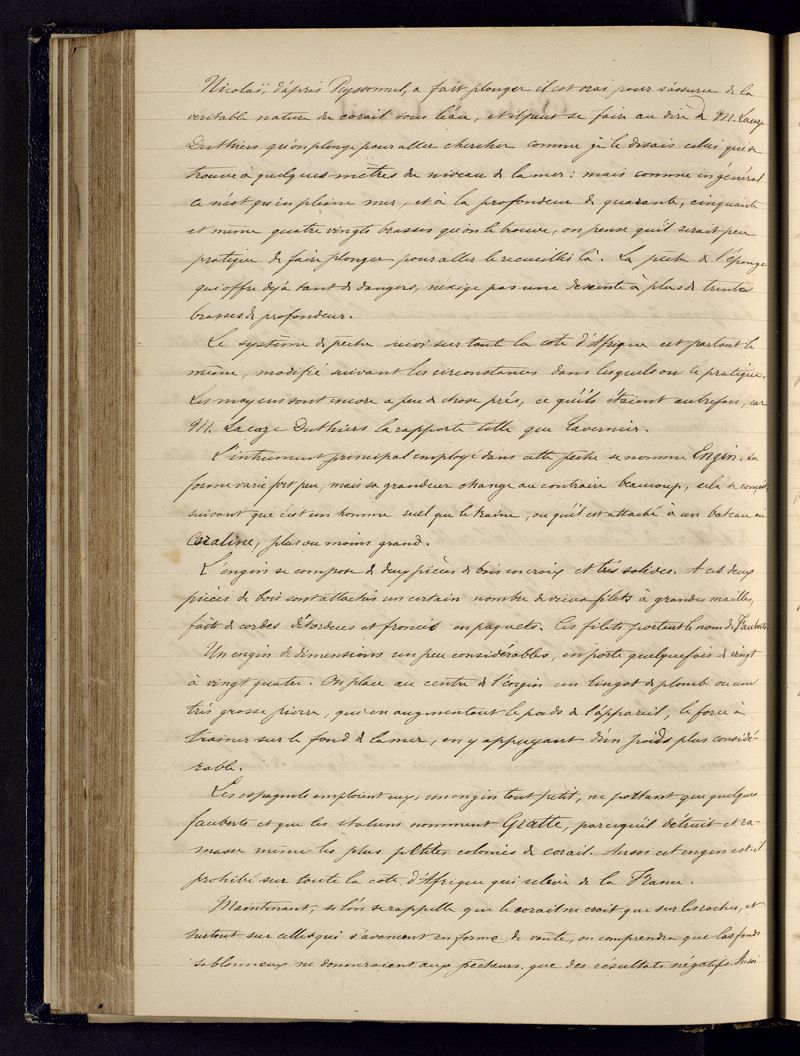 Nicolaï, d'après Peyssonnel, a fait plonger il est vrai pour s'assurer de la
véritable nature du corail sous l'eau, et il peut se faire au dire de M. Lacaze
Duthiers qu'on plonge pour aller chercher comme je le disais celui qui se
trouve à quelques mètres du niveau de la mer : mais comme en général
ce n'est qu'en pleine mer, et à la profondeur de quarante, cinquante
et même quatre vingts brasses qu'on le trouve, on pense qu'il serait peu
pratique de faire plonger pour aller le recueillir là. La pêche de l'éponge
qui offre déjà tant de dangers, n'exige pas une descente à plus de trente
brasses de profondeur.
Le système de pêche suivi sur toute la côte d'Afrique est partout le
même, modifié suivant les circonstances dans lesquels on le pratique.
Les moyens sont encore a peu de chose près, ce qu'ils étaient autrefois, car
M. Lacaze Duthiers la rapporte telle que Tavernier.
L'intrument principal employé dans cette pêche se nomme Engin. Sa
forme varie fort peu, mais sa grandeur change au contraire beaucoup, cela se conçoit,
suivant que c'est un homme seul que le traîne, ou qu'il est attaché à un bateau ou
Coraline, plus ou moins grand.
L'engin se compose de deux pièces de bois en croix et très solides. A ces deux
pièces de bois sont attachés un certain nombre de vieux filets à grandes mailles,
faits de cordes détordues et froncés en paquets. Ces filets portent le nom de Fauberts.
Un engin de dimensions un peu considérables, en porte quelquefois de vingt
à vingt quatre. On place au centre de l'engin un lingot de plomb ou une
très grosse pierre, qui en augmentant le poids de l'appareil, le force à
traîner sur le fond de la mer, en y appuyant d'un poids plus considé-
rable.
Les espagnols emploient eux, un engin tout petit, ne portant que quelques
fauberts et que les italiens nomment Gratte, parcequ'il détruit et ra-
masse même les plus petites colonies de corail. Aussi cet engin est-il
prohibé sur toute la côte d'Afrique qui relève de la France.
Maintenant, si l'on se rappelle que le corail ne croît que sur les roches, et
surtout sur celles qui s'avancent en forme de voûte, on comprendra que les fonds
sablonneux ne donneraient aux pêcheurs que des résultats négatifs. Aussi